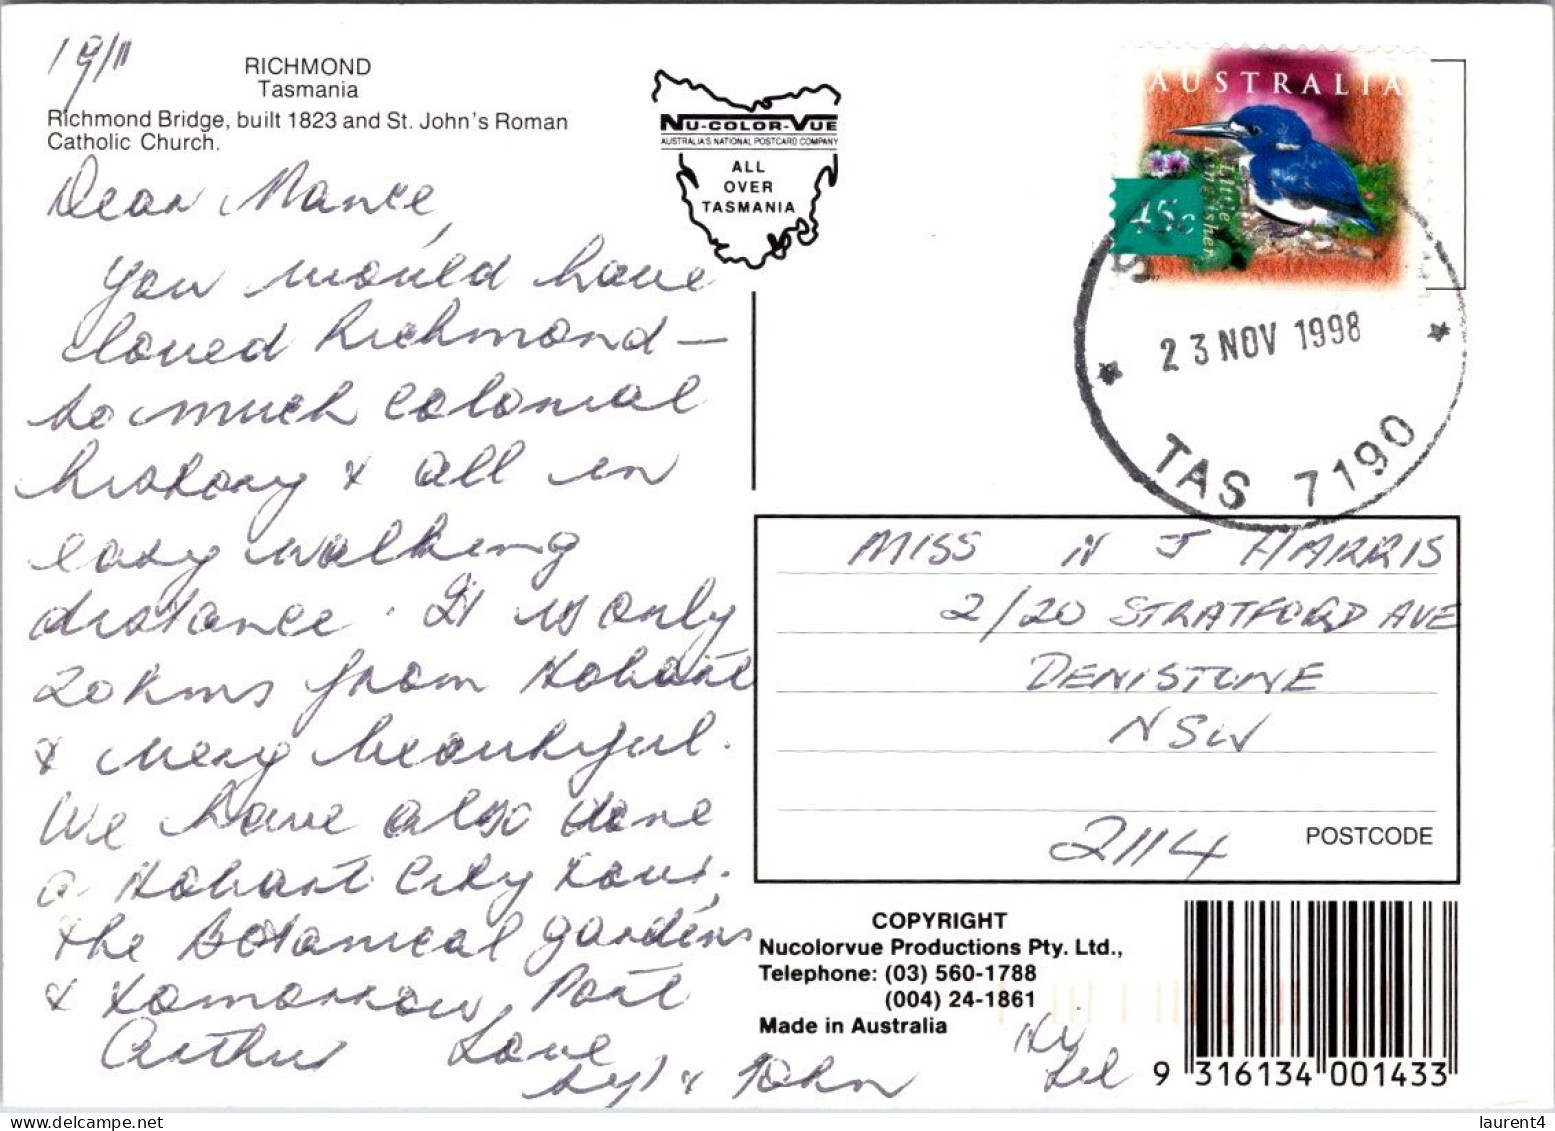 19/11
RICHMOND
Tasmania
Richmond Bridge, built 1823 and St. John's Roman
Catholic Church.
Dear
you would have
loved Richmond –
so much colonial
history & all in
easy walking
distance. It is only
20kms from Hobart
& very beautiful.
We have also done
a Hobart City tour,
the Botanical gardens
& tomorrow, Port
Arthur Love
Syl & John
NU-COLOR-VUE
AUSTRALIA'S NATIONAL POSTCARD COMPANY
ALL
OVER
TASMANIA
AUSTRALIA
45c
Little
Kingfisher
23 NOV 1998
TAS 7190
MISS N J HARRIS
2/20 STRATFORD AVE
DENISTONE
NSW
2114
POSTCODE
COPYRIGHT
Nucolorvue Productions Pty. Ltd.,
Telephone: (03) 560-1788
(004) 24-1861
Made in Australia
9 316134 001433
laurent4